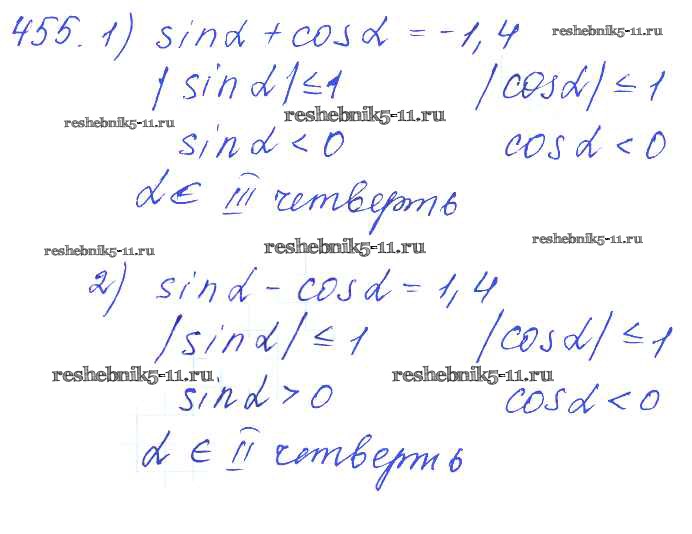 455. 1) sinα + cosα = -1,4 reshebnik5-11.ru
|sinα| ≤ 1 |cosα| ≤ 1
reshebnik5-11.ru reshebnik5-11.ru
sinα < 0 cosα < 0
α ∈ III четверть
reshebnik5-11.ru reshebnik5-11.ru reshebnik5-11.ru
2) sinα - cosα = 1,4
|sinα| ≤ 1 |cosα| ≤ 1
reshebnik5-11.ru reshebnik5-11.ru
sinα > 0 cosα < 0
α ∈ II четверть